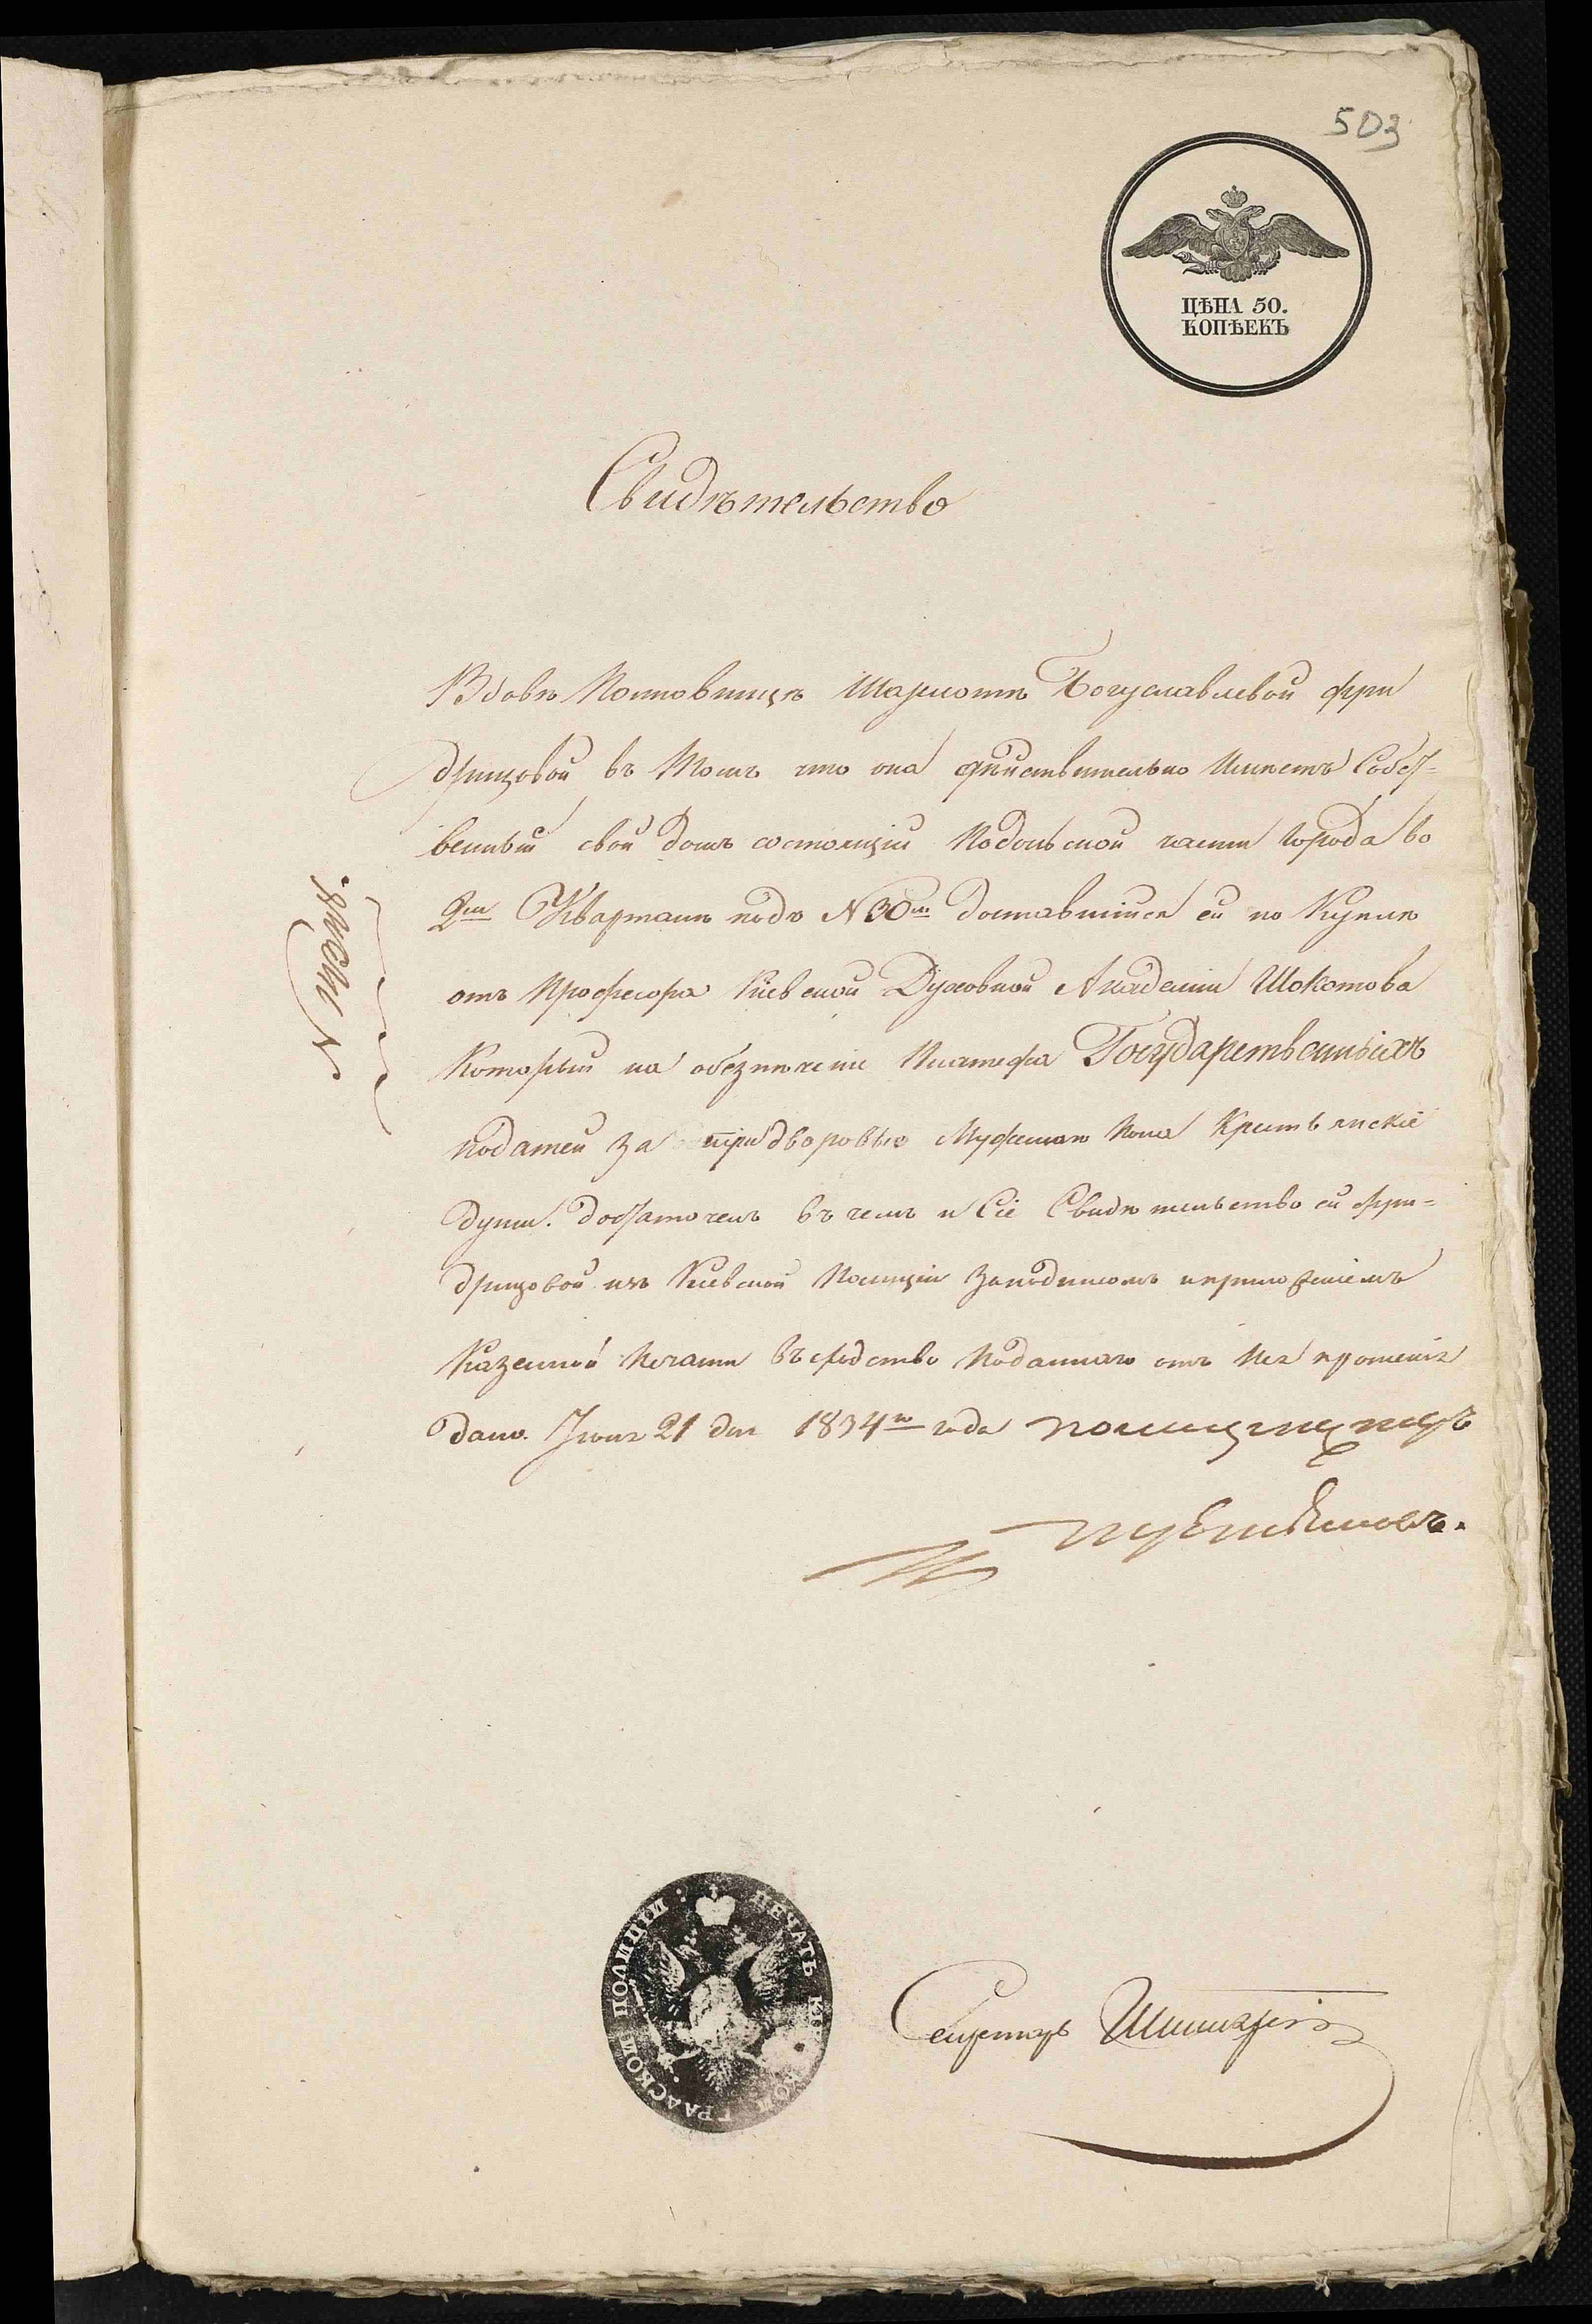 503
ЦѢНА 50.
КОПѢЕКЪ
Свидѣтельство
Вдовѣ Шарлотѣ Богуславлевой Фри
дрицовой въ томъ что она дѣйствительно Имѣетъ Собст=
венный свой домъ состоящій Подольской части города во
2м Кварталѣ подъ N 30м доставшійся ей по Куплѣ
отъ Професора Кіевской Духовной Академіи Шокотова
Который на обезпѣченіе Платежа Государственныхъ
податей за три дворовые Мужеска Пола Крестьянскіе
души. достаточенъ въ чемъ и Сіе Свидѣтельство ей Фри=
дрицовой изъ Кіевской Полиціи Заподписомъ и приложеніемъ
Казенной Печати въ слѣдство Поданнаго отъ Нея прошенія
дано. Іюня 21 дня 1834го года полицмейстеръ
ПЕЧАТЬ КІЕВСКОЙ ГРАДСКОЙ ПОЛИЦІИ
Секретарь